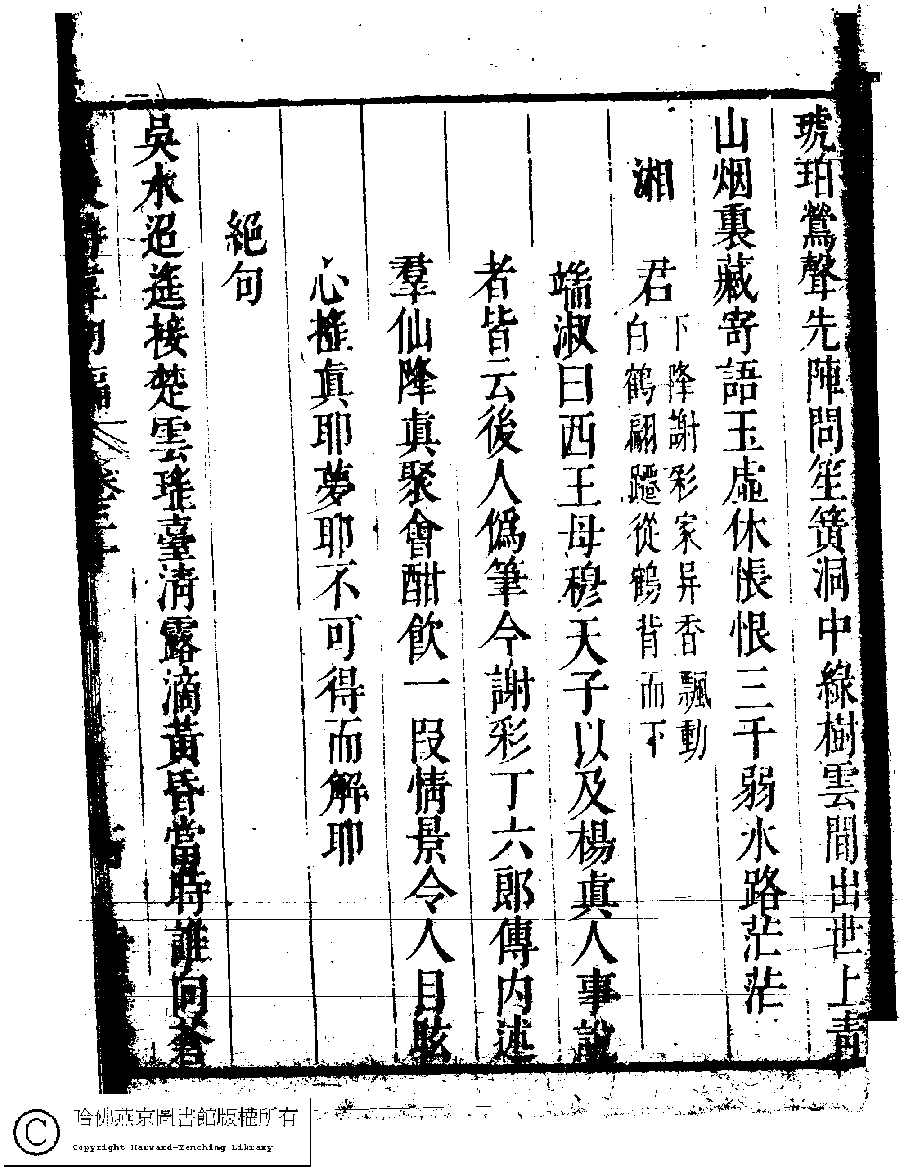 琥珀鶯聲先陣問笙簧洞中綠樹雲間出世上青
山烟裏藏寄語玉虛休悵恨三千弱水路茫茫
湘君
下降謝彩家异香飄動
白鶴翩躚從鶴背而下
端淑曰西王母穆天子以及楊真人事說
者皆云後人僞筆今謝彩丁六郎傳內述
羣仙隆真聚會酣飲一段情景令人目眩
心搖真耶夢耶不可得而解耶
絕句
吳水迢遙接楚雲瑤臺清露滴黃昏當時誰向蒼
哈佛燕京圖書館版權所有
Copyright Harvard-Yenching Library